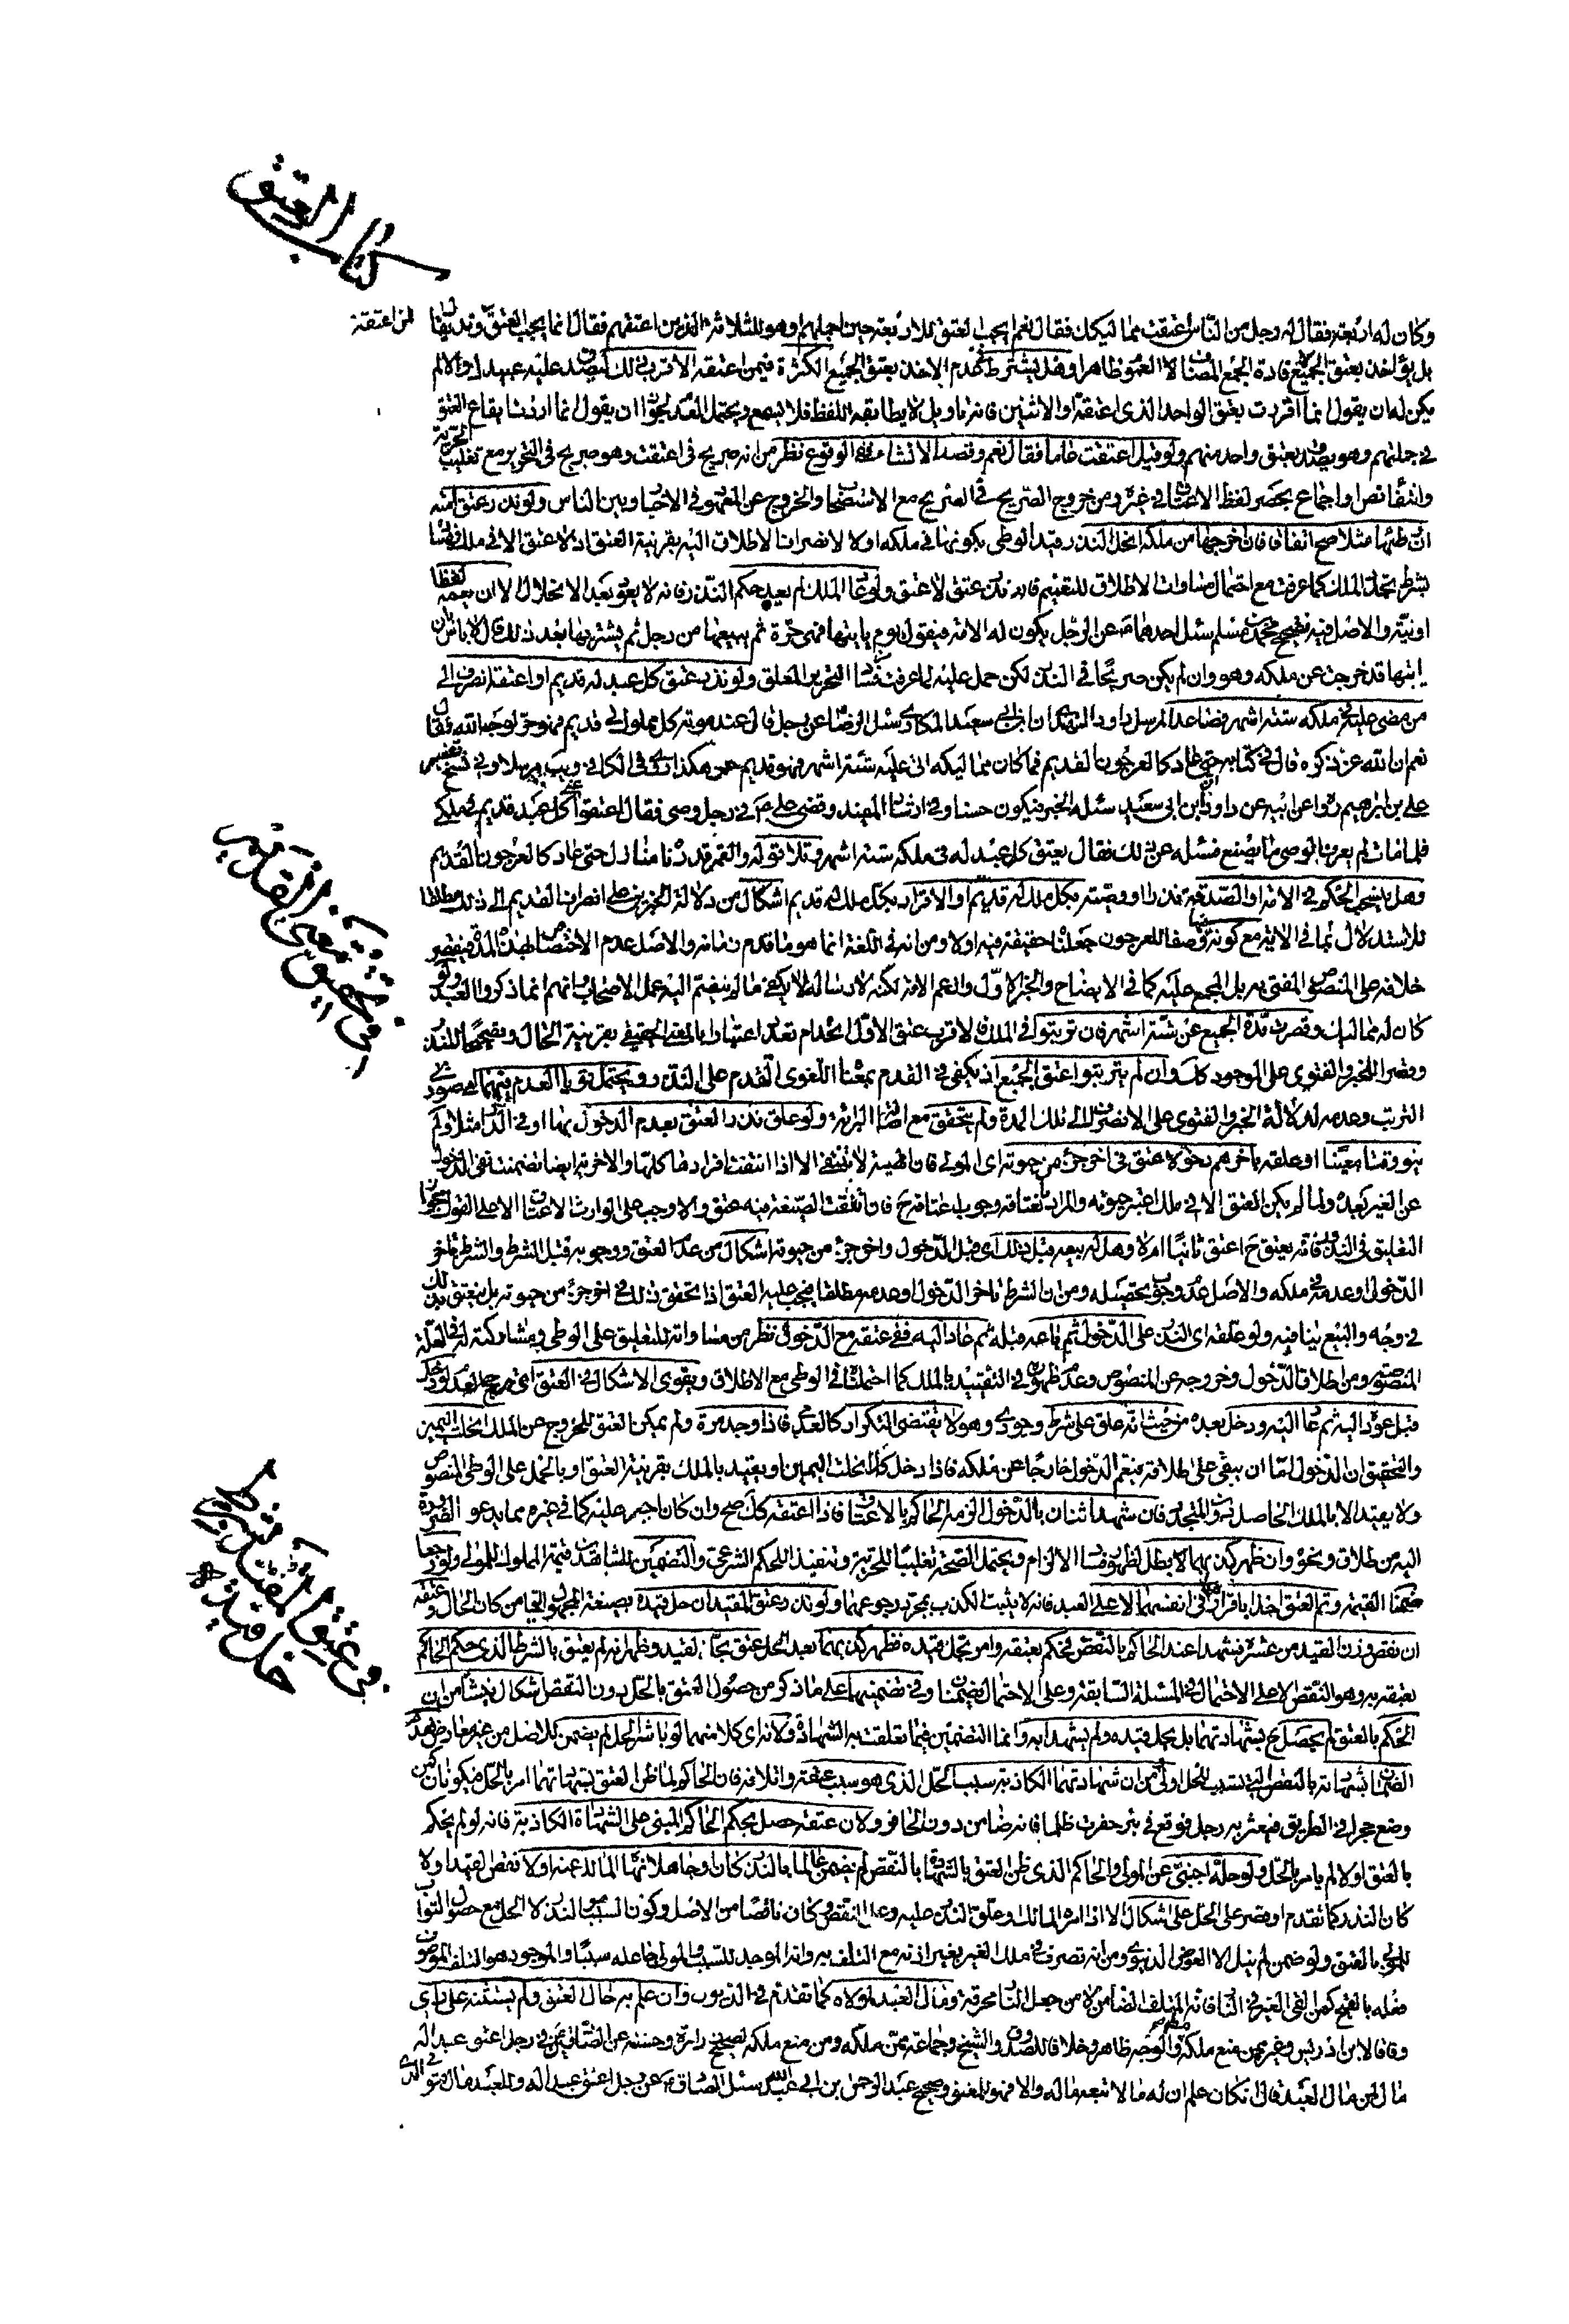 كتاب العتق
وكان له اربعة فقال له رجل من الناس اعتقت مماليكك فقال نعم ايجب العتق للاربعة حين اجملهم او هو للثلاثة الذين اعتقهم فقال انما يجب العتق لمن اعتقه
بل يؤاخذ بعتق الجميع الجمع المضاف العموم ظاهرا وهل يشترط في عدم الاخذ بعتق الجميع الكثرة فيمن اعتقه الاقرب ذلك ليصدق عليه عبيدك والا لم
يكن له ان يقول انما اقررت بعتق الواحد الذي اعتقته او الاثنين فانه تاويل لا يطابقه اللفظ فلا يسمع ويحتمل العدم ان يقول انما اردت ايقاع العتق
في جملتهم وهو يصدق بعتق واحد منهم ولو قيل اعتقت غانما فقال نعم وقصد الانشاء ففي الوقوع نظر من انه صريح في اعتقت وهو صريح في التحرير مع تغليب الحرية
وانتفاء نص او اجماع بحصر لفظ الاعتاق في غيره ومن خروج الصريح في الصريح مع الاستصحاب والخروج عن المعهود في الاخبار وبين الناس ولو نذر عتق امته
ان وطئها مثلا صح اتفاقا فان اخرجها من ملكه انحل النذر قيد الوطي بكونها في ملكه اولا لانصراف الاطلاق اليه بقرينة العتق اذ لا عتق الا في ملك
بشرط تجدد الملك كما عرفت مع احتمال مساواة الاطلاق للتعميم فانه نذر عتق لا عتق ولو عاد الملك لم يعد حكم النذر فانه لا يعود بعد الانحلال الا ان يعمه لفظا
او نية والاصل فيه صحيح محمد بن مسلم سئل احدهما عن الرجل يكون له الامة فيقول يوم ياتيها فهي حرة ثم يبيعها من رجل ثم يشتريها بعد ذلك قال لا باس بان
ياتيها قد خرجت عن ملكه وهو وان لم يكن صريحا في النذر لكن حمل عليه لما عرفت من فساد التحرير المعلق ولو نذر عتق كل عبد له قديم او اعتقه انصرف الى
من مضى عليه في ملكه ستة اشهر فصاعدا لمرسل داود النهدي ان ابن ابي سعيد المكاري سئل الرضا عن رجل قال عند موته كل مملوك لي قديم فهو حر لوجه الله فقال
نعم ان الله عز ذكره قال في كتابه حتى عاد كالعرجون القديم فما كان من مماليكه اتى عليه ستة اشهر فهو قديم حر هكذا في الكافي ويب مرسلا وفي نسخ تفسير
علي بن ابرهيم رواه عن ابيه عن داود ان ابن ابي سعيد سئله الخبر فيكون حسنا وفي ارشاد المفيد وقضى علي ع في رجل وصى فقال اعتقوا عني كل عبد قديم في ملكي
فلما مات لم يعرف الوصي ما يصنع فسئله عن ذلك فقال يعتق كل عبد له في ملكه ستة اشهر وتلا قوله والقمر قدرناه منازل حتى عاد كالعرجون القديم
وهل ينسحب الحكم في الامة او الصدقة نذرا او وصيته بكل ملك له قديم او الاقرار بكل ملك له قديم اشكال من دلالة الخبرين على انصراف القديم الى ذلك مطلقا
للاستدلال بما في الاية مع كونه وصفا للعرجون جعلنا حقيقة فيه اولا ومن انه في اللغة انما هو ما قدم زمانه والاصل عدم الاختصاص بهذه المدة فيقصر
خلافه على المنصوص المفتى به بل المجمع عليه كما في الايضاح والخبر الاول وان عم الامة لكنه لارساله لا يكفي ما لم ينضم اليه عمل الاصحاب وانهم انما ذكروا العبد ولو
كان له مماليك وقصرت مدة الجميع عن ستة اشهر فان ترتبوا في الملك فالاقرب عتق الاول اي اقدام تعددا اعتبارا بالمعنى الحقيقي بقرينة الحال وتصحيحا للنذر
وقصرا للخبر والفتوى على الموجود كك وان لم يترتبوا اعتق الجميع اذ يكفي في القدم بمعناه اللغوي التقدم على النذر ويحتمل قويا العدم فيهما اي صورتي
الترتب وعدمه لدلالة الخبر والفتوى على الانصراف الى تلك المدة ولم يتحقق مع اصالة البرائة ولو علق نذر العتق بعدم الدخول بها او في الدار مثلا ولم
ينو وقتا معينا او علقه باخرهم دخولا عتق في اخر جزء من حيوته اي المولى فان المهية لا تنتفي الا اذا انتفت افرادها كلها والاخرية ايضا تضمنت نفي الدخول
عن الغير بعده ولما لم يكن العتق الا في ملك اعتبر حيوته والمراد بعتقه وجوب اعتاقه ح فان اتفقت الصيغة منه عتق والا وجب على الوارث الاعتاق الا على القول بجواز
التعليق في النذر فانه يعتق ح اعتق ثانيا ام لا وهل له بيعه قبل ذلك اي قبل الدخول واخر جزء من حيوته اشكال من عدم العتق ووجوبه قبل الشرط والشرط تاخر
الدخول او عدمه في ملكه والاصل عدم وجوب تحصيله ومن ان الشرط تاخر الدخول او عدمه مطلقا فيجب عليه العتق اذا تحقق ذلك في اخر جزء من حيوته بل يعتق بذلك
في وجه والبيع ينافيه ولو علقه اي النذر على الدخول ثم باعه قبله ثم عاد اليه ففي عتقه مع الدخول نظر من مساواته للتعليق على الوطي ومشاركته له في العلة
المنصوصة ومن اطلاق الدخول وخروجه عن المنصوص وعدم ظهوره في التقييد بالملك كما احتملناه في الوطي مع الاطلاق ويقوى الاشكال في العتق
قبل عوده اليه ثم عاد اليه ودخل بعده من حيث انه علق على شرط وجودي وهو لا يقتضي التكرار كالعدمي فاذا وجد مرة ولم يمكن العتق للخروج عن الملك انحلت اليمين
والتحقيق ان الدخول اما ان يبقى على اطلاقه فيعم الدخول خارجا عن ملكه فاذا دخل كك انحلت اليمين او يقيد بالملك بقرينة العتق او بالحمل على الوطي المنصوص
ولا يقيد الا بالملك الحاصل دون المتجدد فان شهد اثنان بالدخول لزمه الحاكم بالاعتاق فاذا اعتقه كك صح وان كان اجبر عليه كما في غيره مما يدعو الضرورة
اليه من طلاق ونحوه وان ظهر كذبهما لا بطل لظهور فساد الالزام ويحتمل الصحة تغليبا للحرية وتنفيذا للحكم الشرعي والتضمين للشاهدين قيمة المملوك للمولى ولو رجعا
ضمنا القيمة وتم العتق اخذا باقرارهما في انفسهما لا على العبد فانه لا يثبت الكذب بمجرد رجوعهما ولو نذر عتق المقيد ان حل قيده بصيغة المجهول ايا من كان الحال وعتقه
ان نقص وزن القيد من عشرة فشهدا عند الحاكم بالنقص فحكم بعتقه وامر بحل قيده فظهر كذبهما بعد الحل عتق بحل القيد وظهر انه لم يعتق بالشرط الذي حكم الحاكم
بعتقه به وهو النقص الا على الاحتمال في المسئلة السابقة وعلى الاحتمال يضمنان وفي تضمينهما على ما ذكر من حصول العتق بالحل دون النقص اشكال ينشأ من ان
الحكم بالعتق لم يحصل ح بشهادتهما بل بحل قيده ولم يشهدا به وانما التضمين فيما تعلقت به الشهادة ولانه اي كلا منهما لو باشر الحل لم يضمن للاصل من غير معارض فعدم
الضمان بشهادته بالنقص التي تسبب للحل اولى ومن ان شهادتهما الكاذبة سبب الحل الذي هو سبب عتقه واتلافه فان الحاكم لما ظن العتق بشهادتهما امر بالحل فيكونان كمن
وضع حجرا في الطريق فيعثر به رجل فوقع في بئر حفرت ظلما فانه ضامن دون الحافر ولان عتقه حصل بحكم الحاكم المبني على الشهادة الكاذبة فانه لو لم يحكم
بالعتق اولا لم يامر بالحل ولو حله اجنبي عن المولى والحاكم الذي ظن العتق بالشهادة بالنقص لم يضمن عالما بالنذر كان او جاهلا نهاه المالك عنه اولا نقص القيد اولا
كان النذر كما تقدم او قصر على الحل على اشكال الا اذا امره المالك وعلق النذر عليه وعلى النقص وكان ناقصا من الاصل وكون السبب هو النذر لا الحل مع حصول الثواب
للمولى بالعتق ولو ضمن لم ينل الا العوض الدنيوي ومن انه تصرف في ملك الغير بغير اذنه مع التلف به وانه الموجد للسبب والمولى جاعله سببا والموجود هو التلف
مثله بالفتح كمن القى الغير في النار فانه المتلف الضامن لا من جعل النار محرقة ومال العبد لمولاه كما تقدم في الديون وان علم به حال العتق ولم يستثنه على راي
وفاقا لابن ادريس وغيره ممن منع ملكه والوجه ظاهر وخلافا للصدوق والشيخ وجماعة ممن ملكه ومن منع ملكه لصحيح زرارة وحسنه عن الصادقين في رجل اعتق عبدا له
مال لمن مال العبد قال ان كان علم ان له مالا تبعه ماله والا فهو للمعتق وصحيح عبد الرحمن بن ابي عبد الله سئل الصادق عن رجل اعتق عبدا له وللعبد مال
في تحقيق معنى القديم
في عتق المقيد بشرط
حل قيده